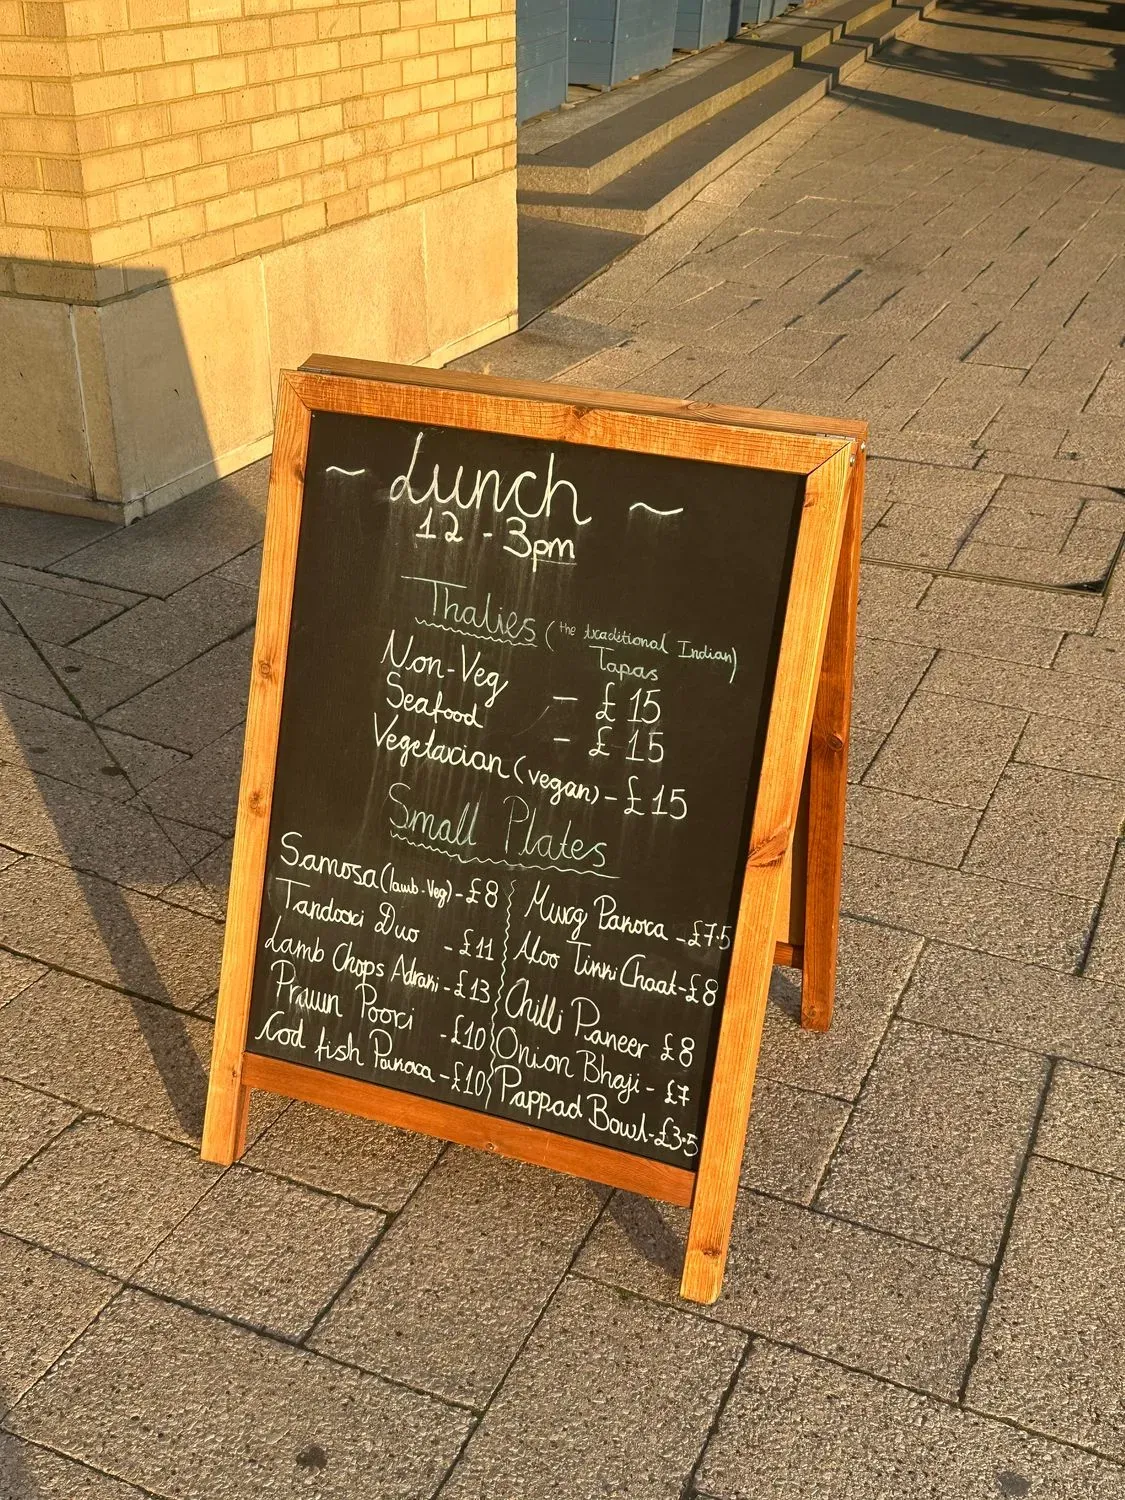 ~ Lunch ~
12 - 3pm
Thalies (the traditional Indian)
Tapas
Non-Veg - £15
Seafood - £15
Vegetarian (vegan) - £15
Small Plates
Samosa (lamb-Veg) - £8
Tandoori Duo - £11
Lamb Chops Adraki - £13
Prawn Poori - £10
Cod fish Pakora - £10
Murg Pakora - £7.5
Aloo Tikki Chaat - £8
Chilli Paneer £8
Onion Bhaji - £7
Pappad Bowl - £3.5